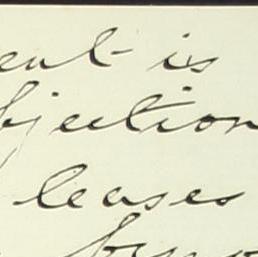 ent is
bjection
leases